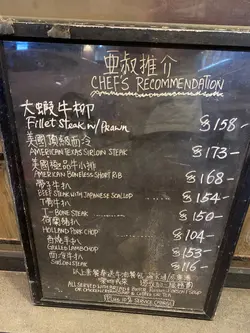 亞叔推介
CHEF'S RECOMMENDATION
大蝦牛柳
Fillet Steak w/ Prawn $158
美國頂級西冷
AMERICAN TEXAS SIRLOIN STEAK $173
美國極品牛小排
AMERICAN BONELESS SHORT RIB $168
帶子牛扒
BEEF STEAK WITH JAPANESE SCALLOP $154
T骨牛扒
T-BONE STEAK $150
荷蘭豬扒
HOLLAND PORK CHOP $104
香燒羊扒
GRILLED LAMB CHOP $153
西冷牛扒
SIRLOIN STEAK $116
ALL SERVED WITH
10% SERVICE CHARGE